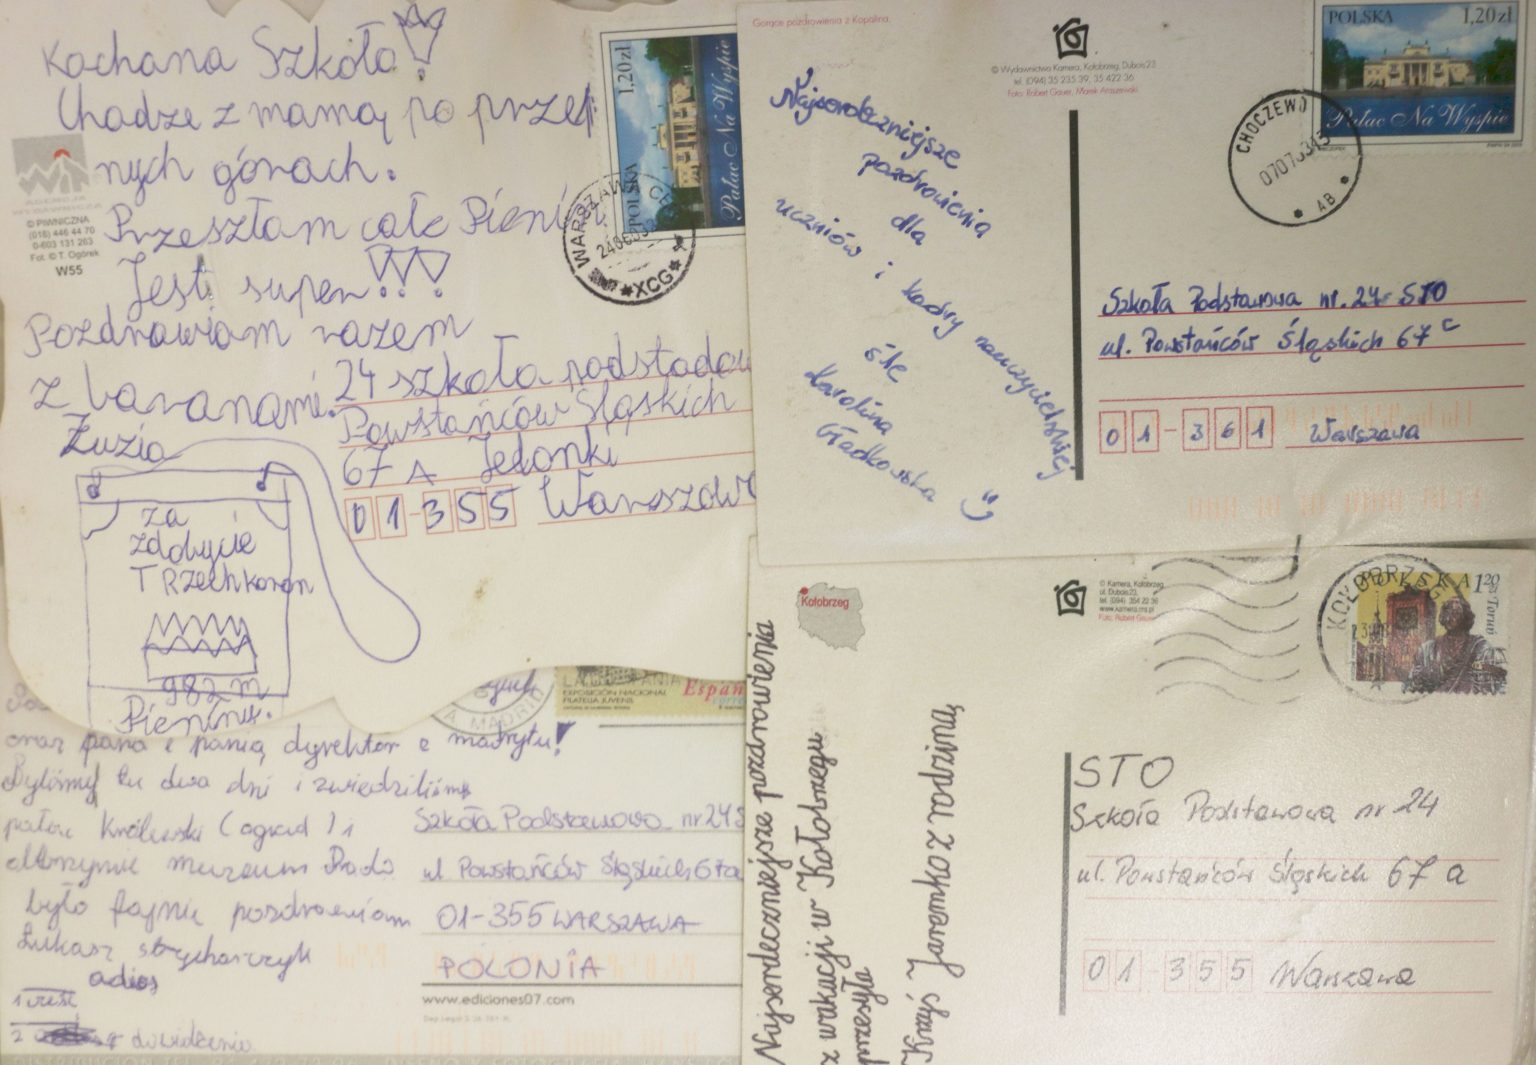 Kochana Szkoło!
Chodze z mamą po przep
nych górach.
Przeszłam całe Pieni
Jest super!!!
Pozdrawiam razem
z baranami.
Zuzia
za
zdobycie
TRzech koron
982 m
Pieniny.
AGENCJA
WYDAWNICZA
© PIWNICZNA
(018) 446 44 70
0-603 131 263
Fot. © T. Ogórek
W55
1,20zł
POLSKA
Pałac Na Wyspie
WARSZAWA
XCG
24 szkoła podstadow
Powstańców Śląskich
67 A Jelonki
01-355 Warszawa
Gorące pozdrowienia z Kopalina.
© Wydawnictwo Kamera, Kołobrzeg, Dubois 23
tel. (094) 35 235 39, 35 422 36
Foto: Robert Gauer, Marek Araszewski
Najserdeczniejsze
pozdrowienia
dla
uczniów i kadry nauczycielskiej
śle
Karolina
Gładkowska
POLSKA 1,20zł
Pałac Na Wyspie
CHOCZEWO
AB
Szkoła Podstawowa nr. 24-STO
ul. Powstańców Śląskich 67c
01-361 Warszawa
oraz pana i panią dyrektor z madrytu!
Byliśmy tu dwa dni i zwiedziliśmy
pałac Królewski (ogród) i
olbrzymie muzeum Prado
było fajnie pozdrawiam
Łukasz strycharczyk
adios
do widzenia
EXPOSICIÓN NACIONAL
FILATELIA JUVENIL
Españ
MADRID
Szkoła Podstawowa nr 24 S
ul. Powstańców Śląskich 67a
01-355 WARSZAWA
POLONIA
www.ediciones07.com
Kołobrzeg
© Kamera, Kołobrzeg
ul. Dubois 23,
tel. (094) 354 22 36
www.kamera.ms.pl
Foto: Robert Gauer
Najserdeczniejsze pozdrowienia
z wakacji w Kołobrzegu
przesyła
Krzyś Jaremko z rodziną
KOŁOBRZEG
POLSKA 1 20
Toruń
STO
Szkoła Podstawowa nr 24
ul. Powstańców Śląskich 67 a
01-355 Warszawa